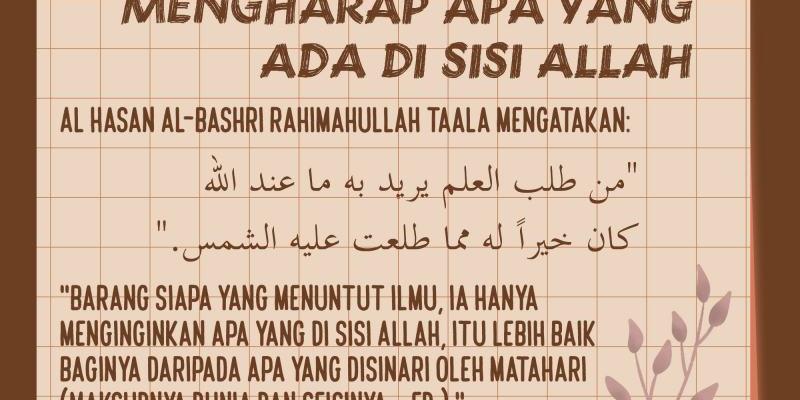 MENGHARAP APA YANG
ADA DI SISI ALLAH
AL HASAN AL-BASHRI RAHIMAHULLAH TAALA MENGATAKAN:
"من طلب العلم يريد به ما عند الله
كان خيراً له مما طلعت عليه الشمس."
"BARANG SIAPA YANG MENUNTUT ILMU, IA HANYA
MENGINGINKAN APA YANG DI SISI ALLAH, ITU LEBIH BAIK
BAGINYA DARIPADA APA YANG DISINARI OLEH MATAHARI
(MAKSUDNYA DUNIA DAN SEISINYA